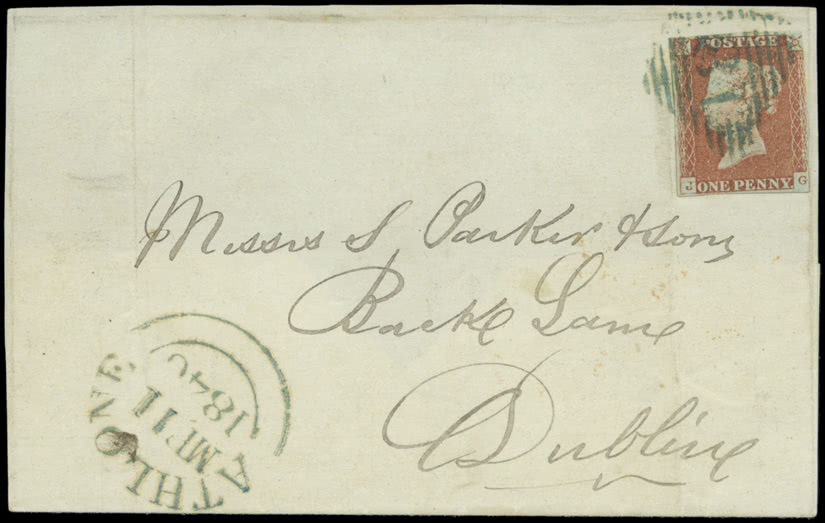 POSTAGE
J ONE PENNY. G
Messrs S. Parker & Sons
Back Lane
Dublin
ATHLONE
MR 11